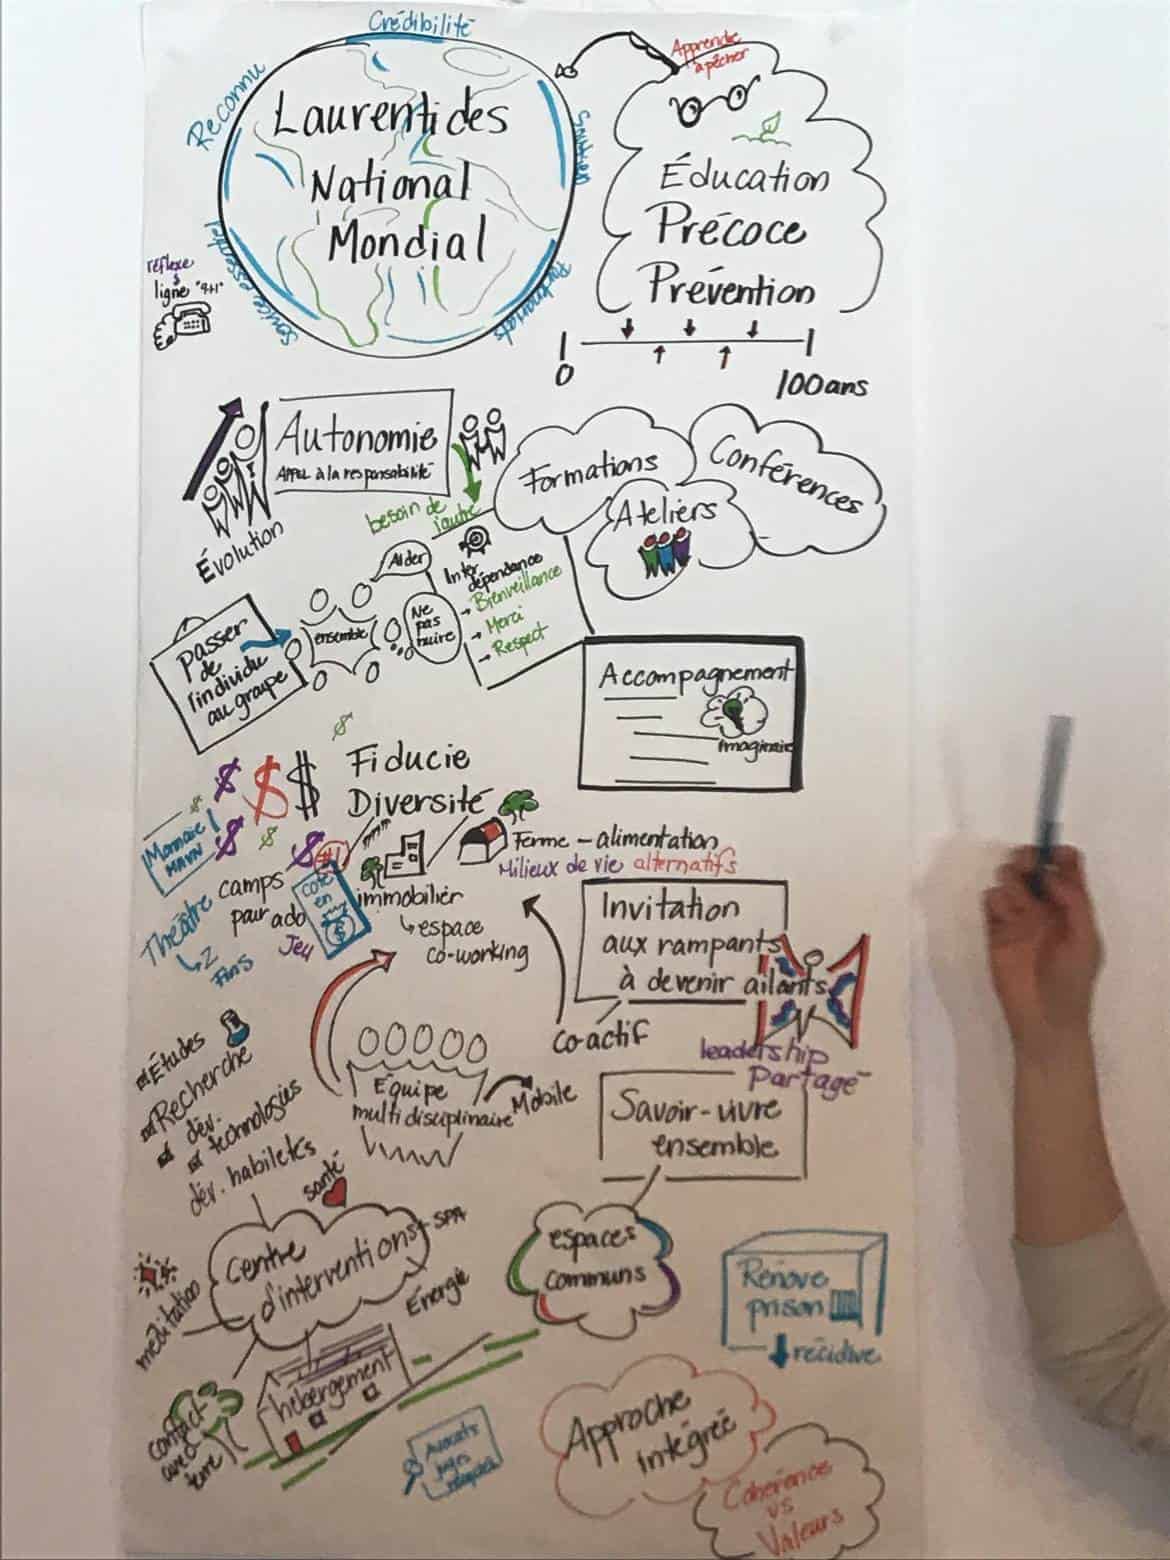 Crédibilité
Reconnu
Laurentides
National
Mondial
Soutien
Partenariats
Services essentiel
réflexe
ligne "911"
Apprendre
à pêcher
Éducation
Précoce
Prévention
0
100 ans
Autonomie
Appel à la responsabilité
Évolution
besoin de
l'autre
Formations
Conférences
Ateliers
Passer
de
l'individu
au groupe
ensemble
Aider
Ne
pas
nuire
Inter
dépendance
Bienveillance
Merci
Respect
Accompagnement
Imaginaire
$
$ $ $
Fiducie
Diversité
Monnaie
$ $ $
#1
Ferme - alimentation
Milieux de vie alternatifs
immobilier
espace
co-working
Théâtre
2
Fins
camps
pour ado
Jeu
coté
en
$
Invitation
aux rampants
à devenir ailants
co-actif
leadership
partagé
Études
Recherche
dév.
technologies
dév. habiletés
Équipe
multidisciplinaire
Mobile
Savoir-vivre
ensemble
santé
Centre
d'interventions
SPA
Énergie
méditation
contact
avec
terre
hébergement
espaces
communs
Rénove
prison
récidive
Avocats
juges
Approche
intégrée
Cohérence
vs
Valeurs